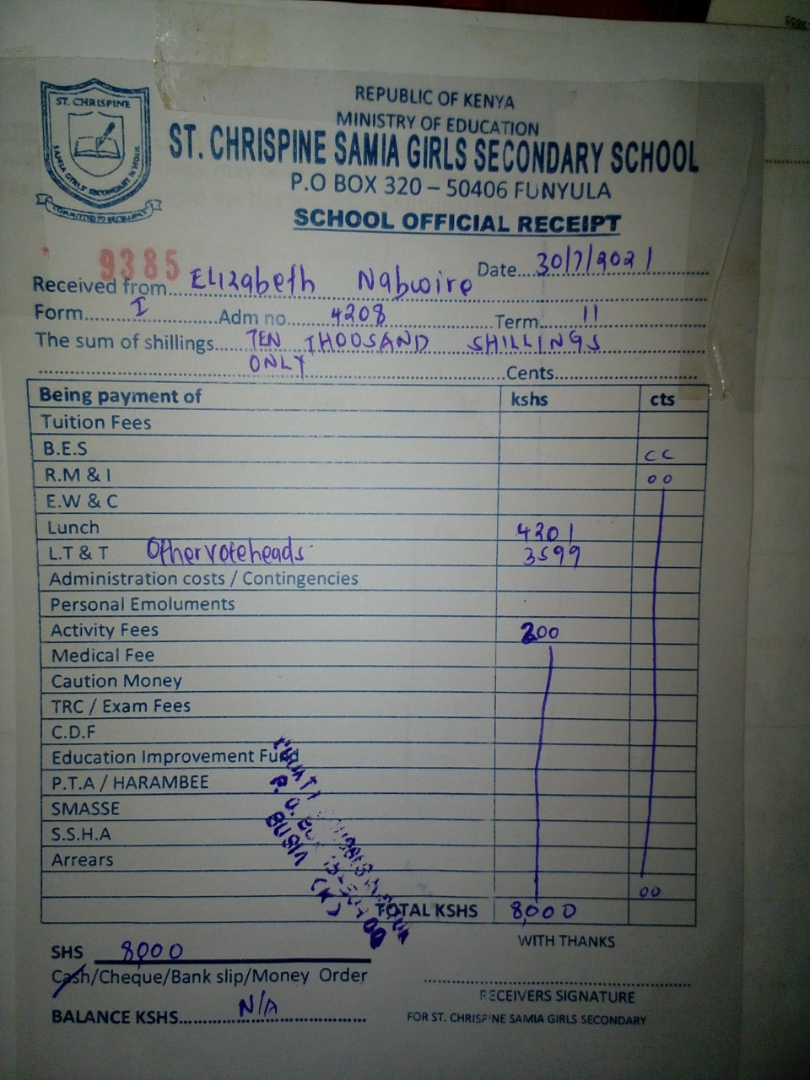 ST. CHRISPINE
SAMIA GIRLS SECONDARY SCHOOL
COMMITTED TO EXCELLENCY
REPUBLIC OF KENYA
MINISTRY OF EDUCATION
ST. CHRISPINE SAMIA GIRLS SECONDARY SCHOOL
P.O BOX 320 – 50406 FUNYULA
SCHOOL OFFICIAL RECEIPT
9385
Date...30/7/2021
Received from...Elizabeth Nabwire
Form...I Adm no...4208 Term...11
The sum of shillings...TEN THOOSAND SHILLINGS
ONLY Cents...
Being payment of kshs cts
Tuition Fees
B.E.S cc
R.M & I 00
E.W & C
Lunch 4201
L.T & T Other voteheads 3599
Administration costs / Contingencies
Personal Emoluments
Activity Fees 200
Medical Fee
Caution Money
TRC / Exam Fees
C.D.F
Education Improvement Fund
P.T.A / HARAMBEE
SMASSE
S.S.H.A
Arrears
00
TOTAL KSHS 8,000
P. O. BOX
BUSIA (K)
SHS 8,000
WITH THANKS
Cash/Cheque/Bank slip/Money Order
RECEIVERS SIGNATURE
BALANCE KSHS...N/A
FOR ST. CHRISPINE SAMIA GIRLS SECONDARY